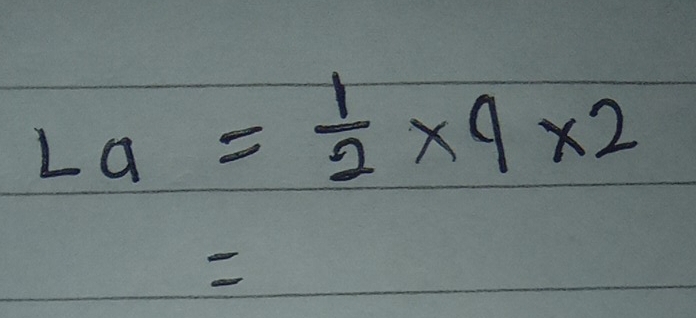 La = 1/2 × 9 × 2
=